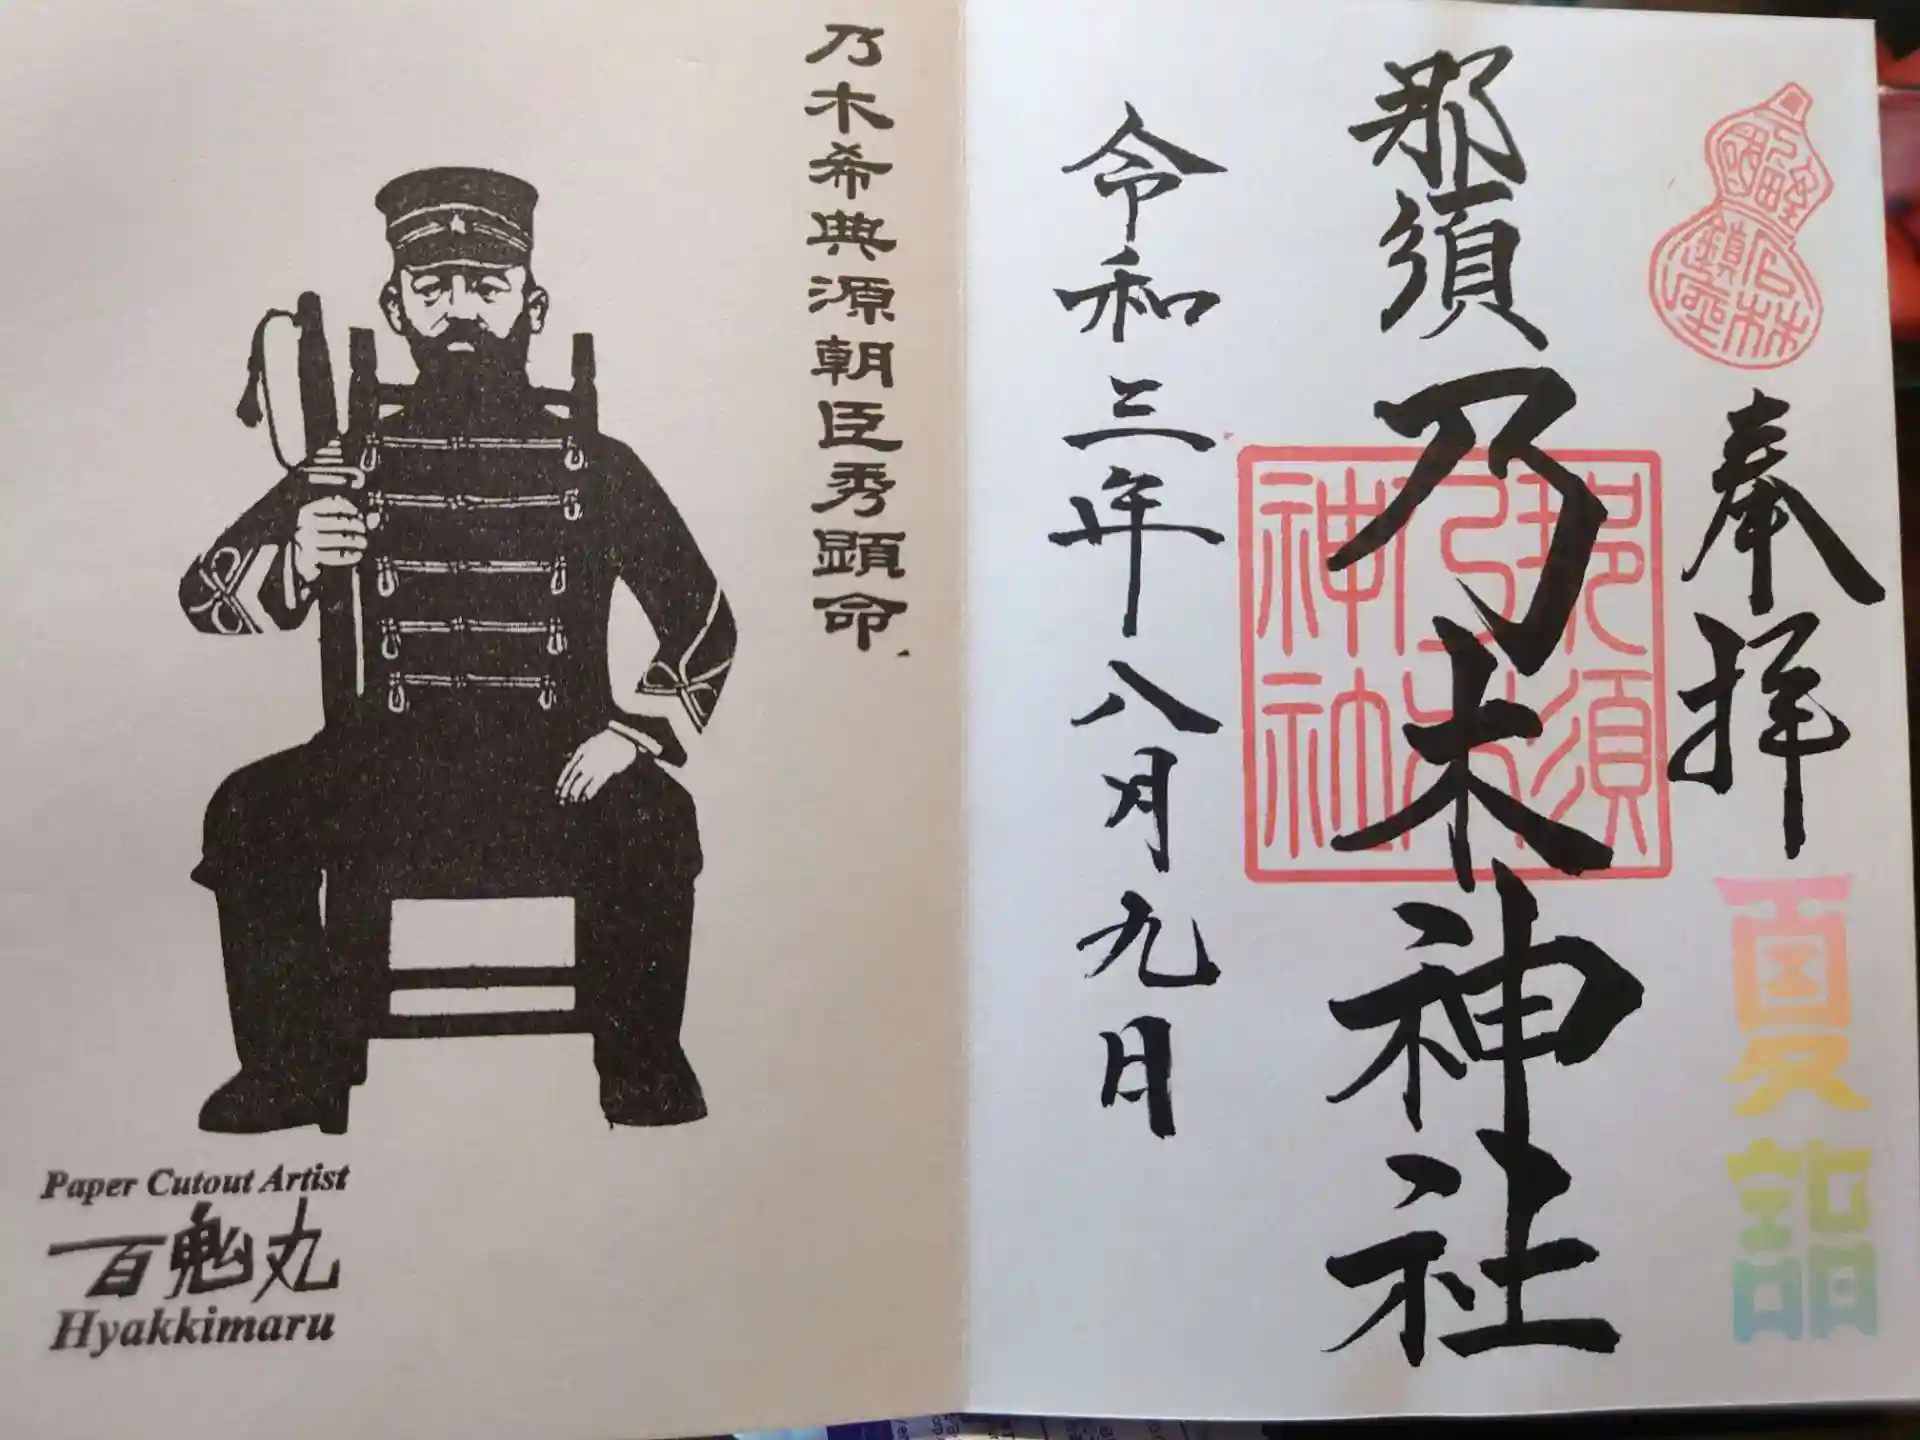 奉拝
夏詣
那須乃木神社
那須
乃木
神社
令和三年八月九日
乃木希典源朝臣秀顕命
Paper Cutout Artist
百鬼丸
Hyakkimaru